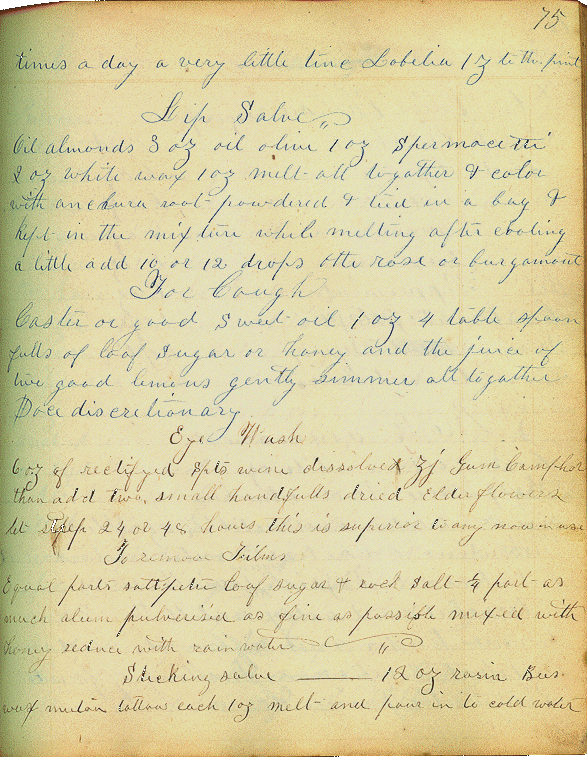 75
times a day a very little tinc Lobelia 1 ℥ to the pint
Lip Salve
Oil almonds 3 oz oil olive 1 oz Spermacetti
2 oz white wax 1 oz melt all togather & color
with anchura root powdered & tied in a bag &
kept in the mixture while melting after cooling
a little add 10 or 12 drops otte rose or burgamont
For Cough
Caster or good Sweet oil 1 oz 4 table spoon
fulls of loaf Sugar or honey and the juice of
two good lemons gently simmer all togather
Doce discretionary
Eye Wash
6 oz of rectifyed Spts wine dissolved ℥j Gum Camphor
than add two small handfulls dried Elderflowers
let steep 24 or 48 hours this is superior to any now in use
To remove Films
Equal parts saltpeter loaf sugar & rock salt ¼ part as
much alum pulverised as fine as possible mixed with
honey reduce with rainwater
Sticking salve — 12 oz rosin Bees
wax mutton tallow each 1 oz melt and pour in to cold water